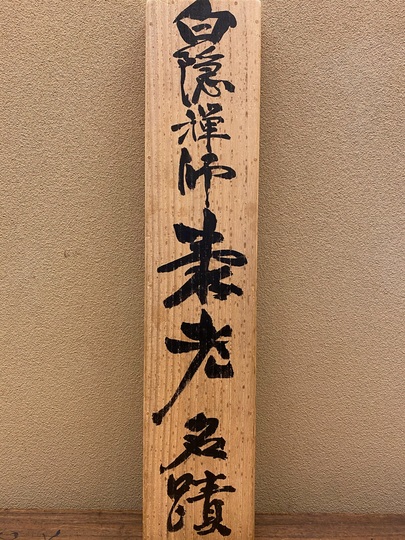 白隠禅師養老名蹟